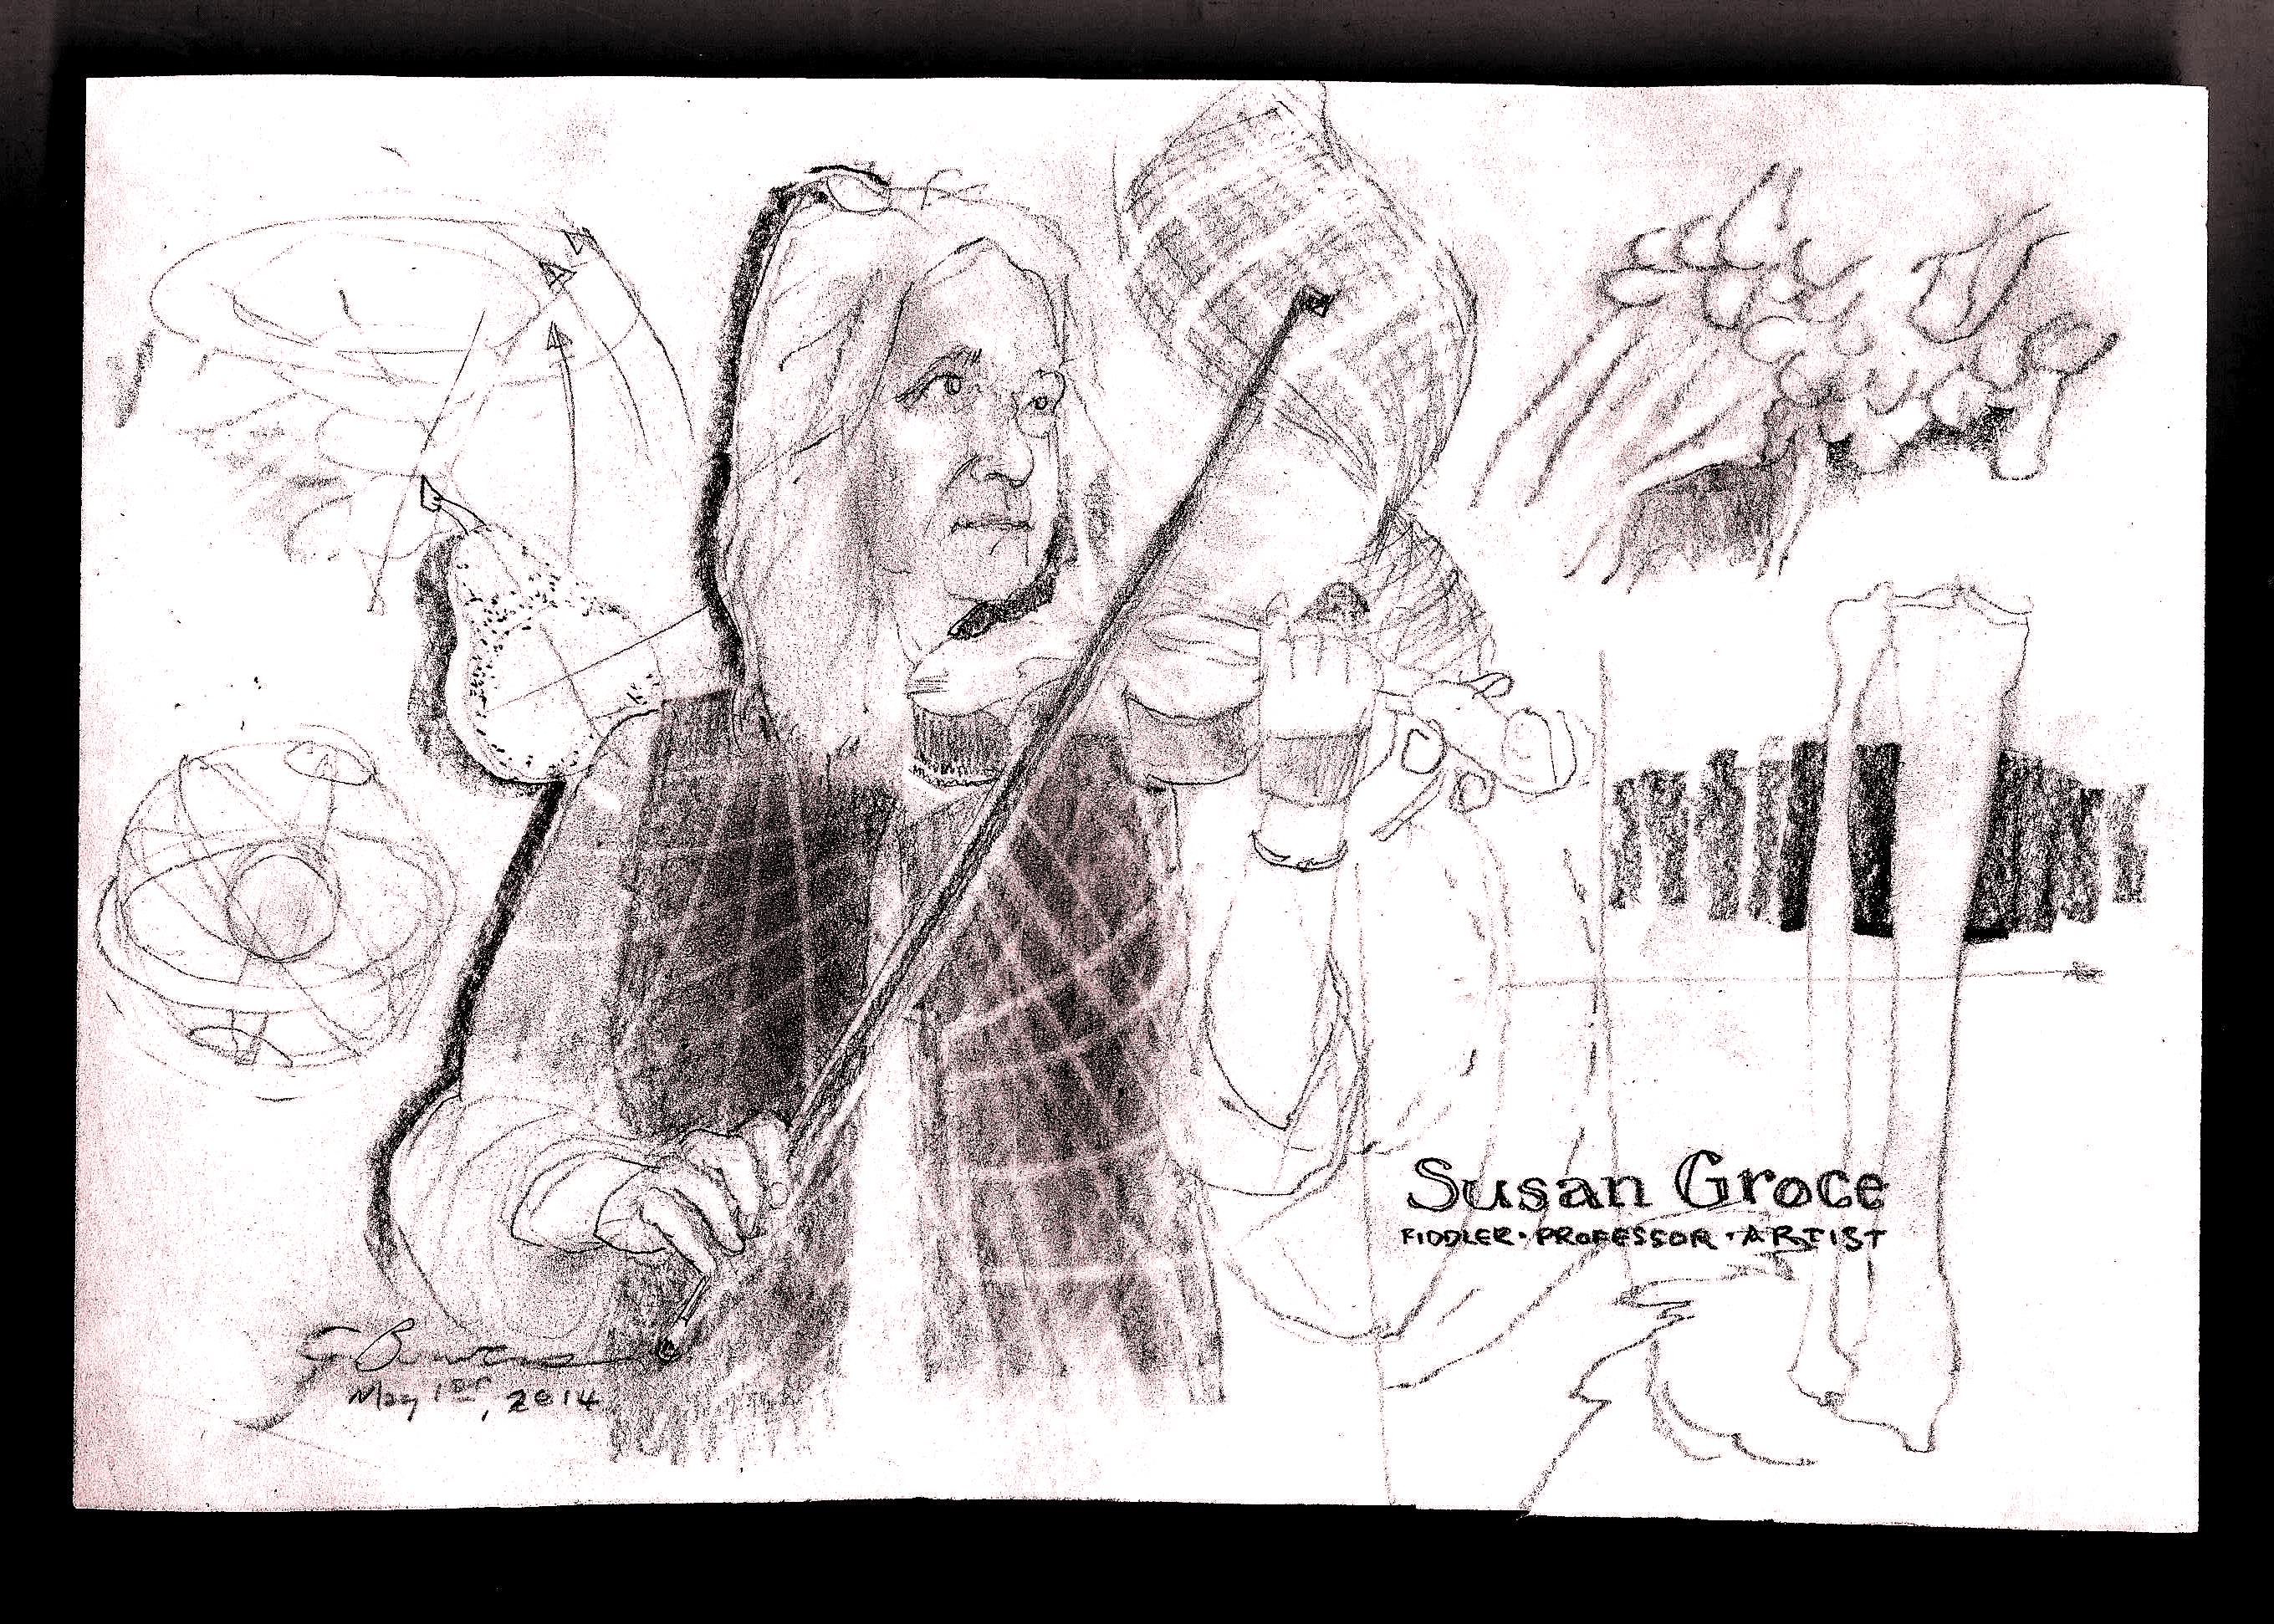 Susan Groce
FIDDLER · PROFESSOR · ARTIST
May 1st, 2014